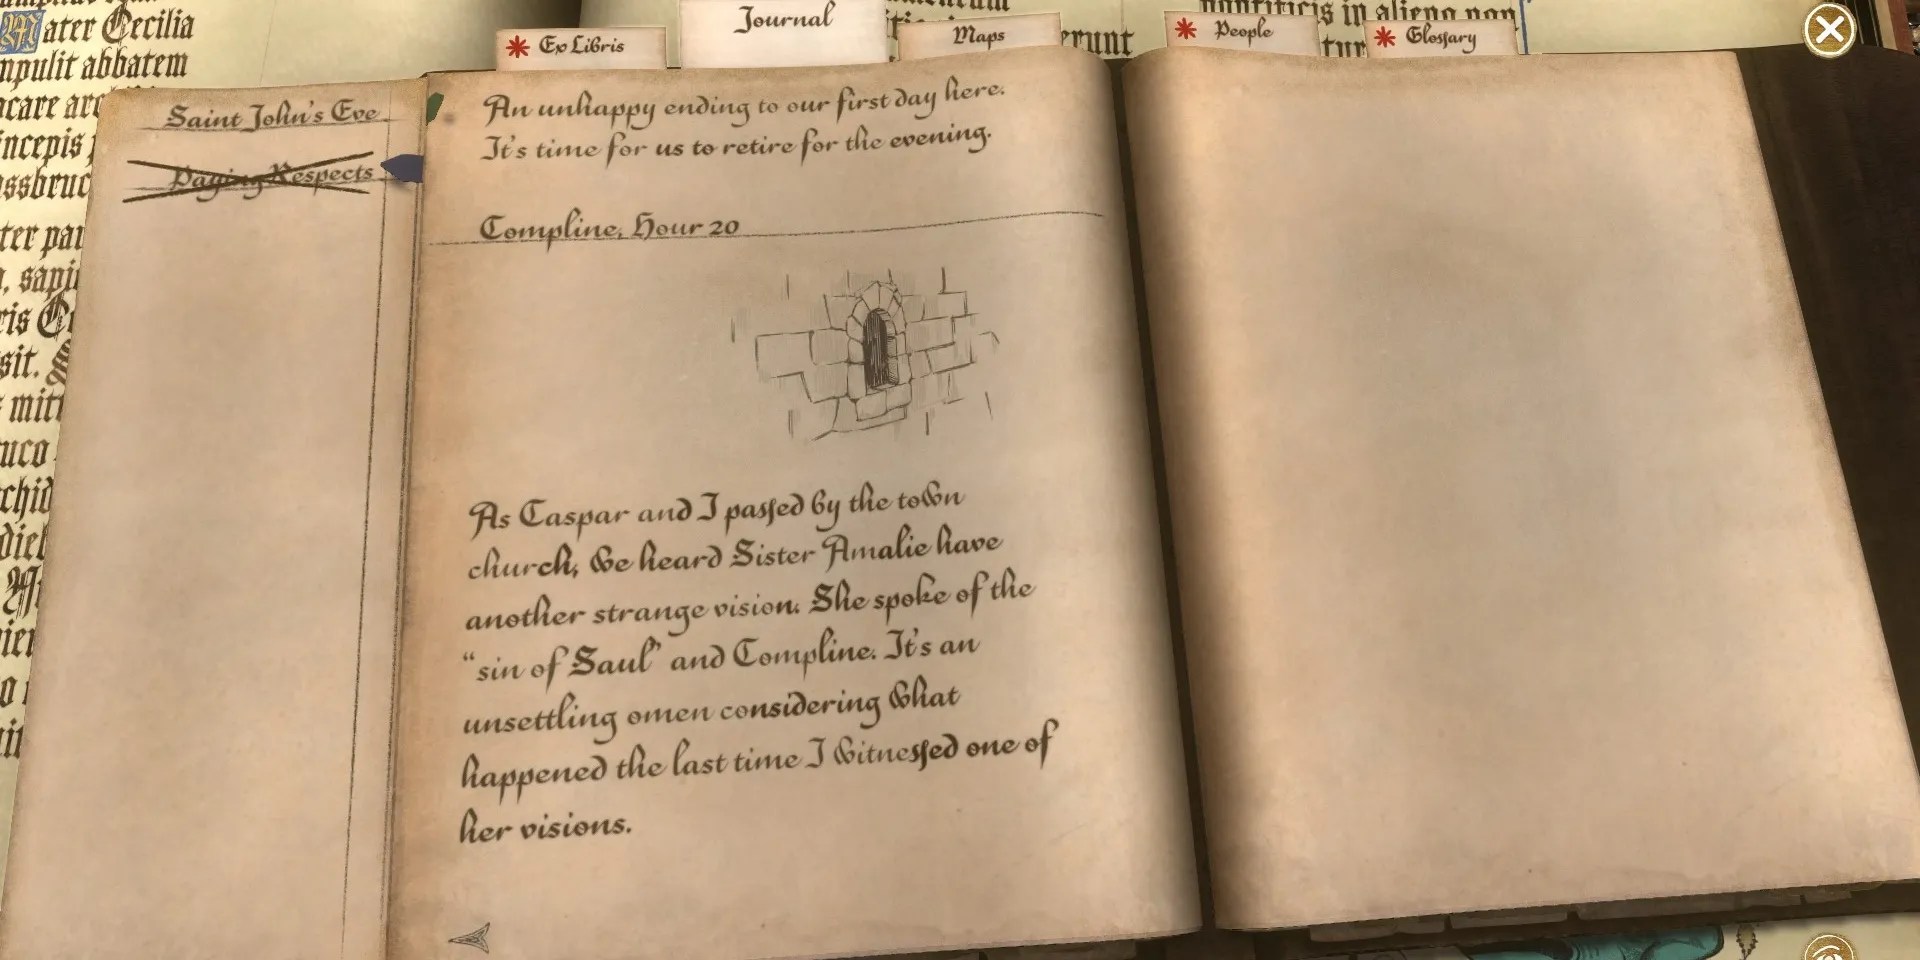 Mater Cecilia
abbatem
Ex Libris
Journal
Maps
People
Glossary
Saint John's Eve
Paying Respects
An unhappy ending to our first day here.
It's time for us to retire for the evening.
Compline, Hour 20
As Caspar and I passed by the town
church, we heard Sister Amalie have
another strange vision. She spoke of the
"sin of Saul" and Compline. It's an
unsettling omen considering what
happened the last time I witnessed one of
her visions.